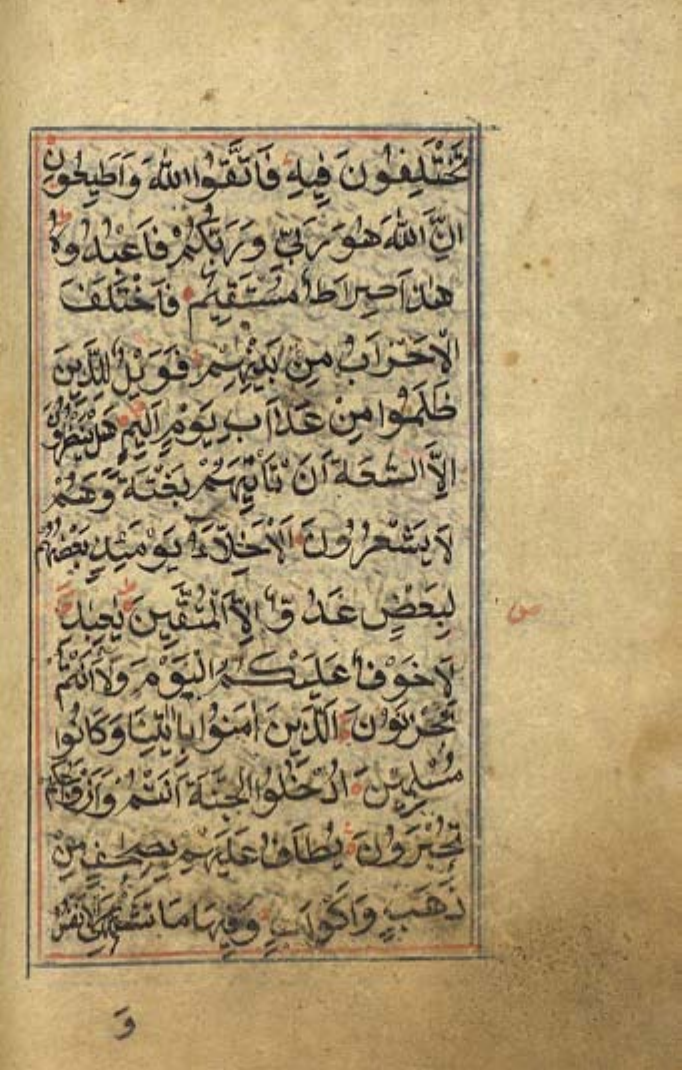 تَخْتَلِفُونَ فِيهِ فَاتَّقُوا اللهَ وَاَطِيعُونِ
اِنَّ اللهَ هُوَ رَبِّي وَرَبُّكُمْ فَاعْبُدُوهُ
هٰذَا صِرَاطٌ مُسْتَقِيمٌ فَاخْتَلَفَ
الْاَحْزَابُ مِنْ بَيْنِهِمْ فَوَيْلٌ لِلَّذِينَ
ظَلَمُوا مِنْ عَذَابِ يَوْمٍ اَلِيمٍ هَلْ يَنْظُرُونَ
اِلَّا السَّعَةَ اَنْ تَأْتِيَهُمْ بَغْتَةً وَهُمْ
لَا يَشْعُرُونَ اَلْاَخِلَّاءُ يَوْمَئِذٍ بَعْضُهُمْ
لِبَعْضٍ عَدُوٌّ اِلَّا الْمُتَّقِينَ يٰعِبَادِ
لَا خَوْفٌ عَلَيْكُمُ الْيَوْمَ وَلَا اَنْتُمْ
تَحْزَنُونَ اَلَّذِينَ اٰمَنُوا بِاٰيٰتِنَا وَكَانُوا
مُسْلِمِينَ اُدْخُلُوا الْجَنَّةَ اَنْتُمْ وَاَزْوَاجُكُمْ
تُحْبَرُونَ يُطَافُ عَلَيْهِمْ بِصِحَافٍ مِنْ
ذَهَبٍ وَاَكْوَابٍ وَفِيهَا مَا تَشْتَهِيهِ الْاَنْفُسُ
وَ